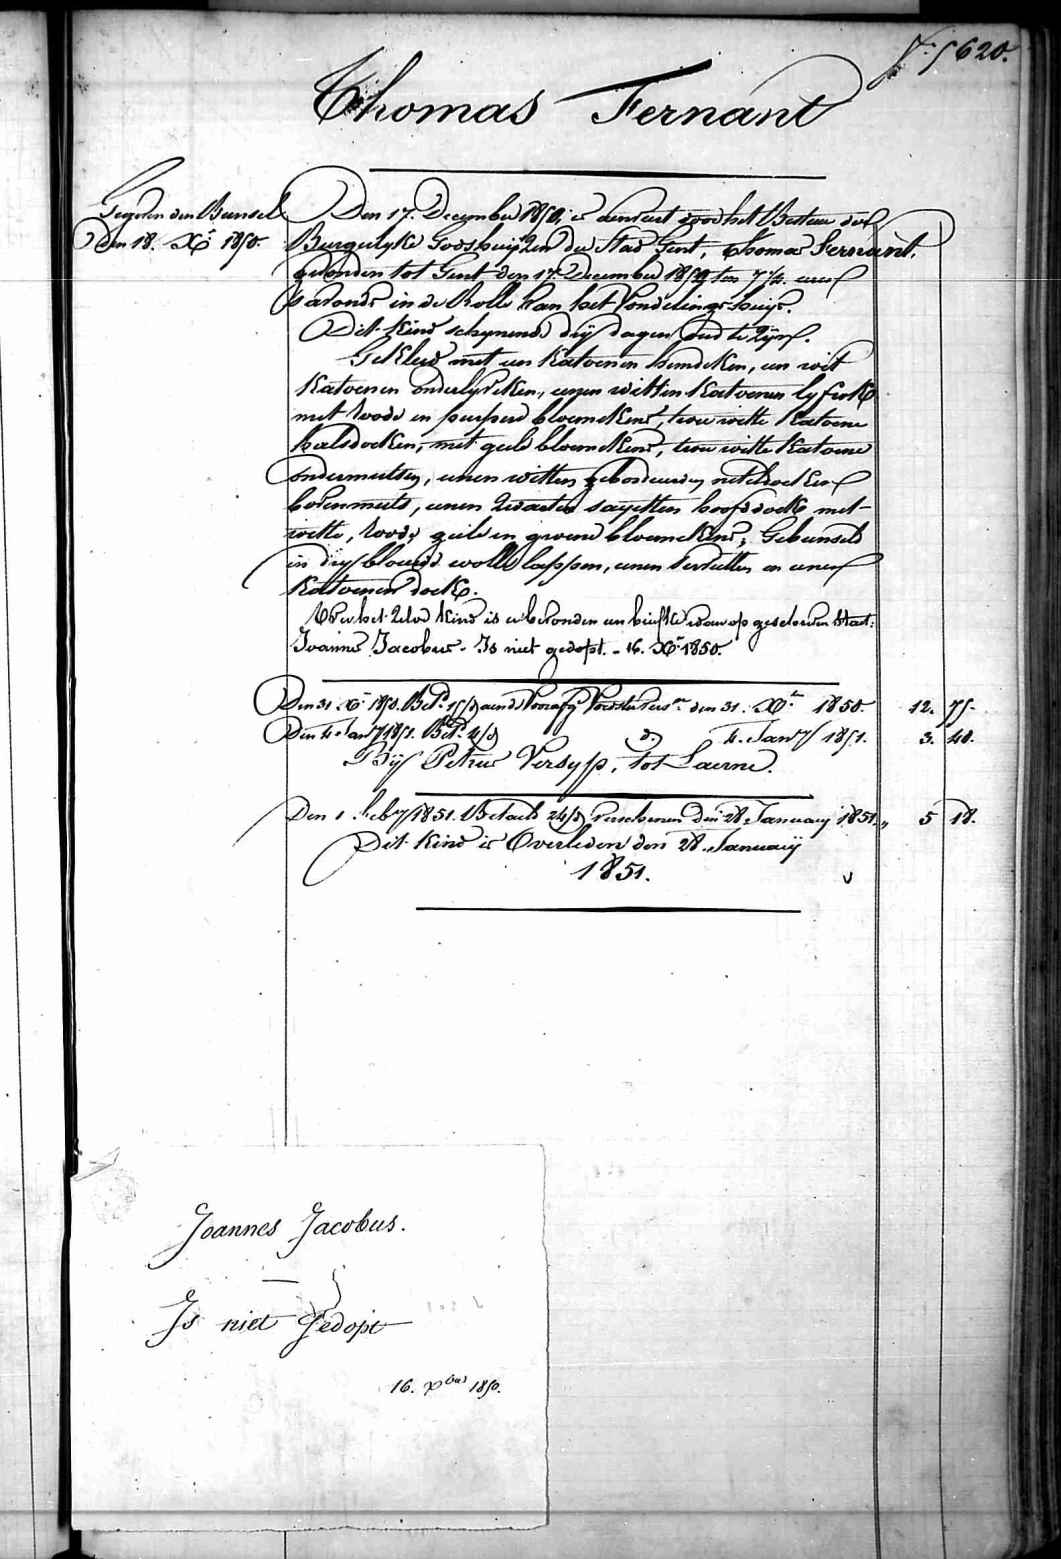 N.º 5620.
Thomas Fernant
Gegeven den Bunsel
den 18. Xr. 1850.
Den 17. December 1850, is aenveirt door het Bestuer der
Burgerlyke Godshuizen der Stad Gent, Thomas Fernant,
gevonden tot Gent den 17. December 1850 ten 7 ¼ uren
s'avonds in de Rolle van het Vondelingshuijs.
Dit kind schynende dry dagen oud te zijn.
Gekleed met een katoenen hemdeken, een wit
katoenen onderlyfken, eenen witten katoenen lyfrok
met roode en purpere bloemekens, twee witte katoene
halsdoeken, met geele bloemekens, twee witte katoene
ondermutsen, eenen witten geborduerden neteldoeken
bovenmuts, eenen zwarten sayetten hoofddoek met
witte, roode, geele en groene bloemekens; Gebunseld
in dry blauwe wolle lappen, eenen servetten en eenen
katoenen doek.
Over het zelve kind is er bevonden een briefke waer op geschreven staet:
Joannes Jacobus. Is niet gedopt. - 16. Xr 1850.
Den 31. Xr 1850. Betd. 15/d aend Voorafg Voorster den 31. Xr. 1850. 12. 75.
Den 4. Jany 1851. Betd. 4/d do. 4. Jany 1851. 3. 40.
Bij Petrus Versyp, tot Laerne.
Den 1. feby 1851. Betaeld 24/d verschenen den 28. January 1851. " 5 18.
Dit kind is Overleden den 28. Januarij
1851. v
Joannes Jacobus.
Is niet Gedopt
16. Xbris 1850.